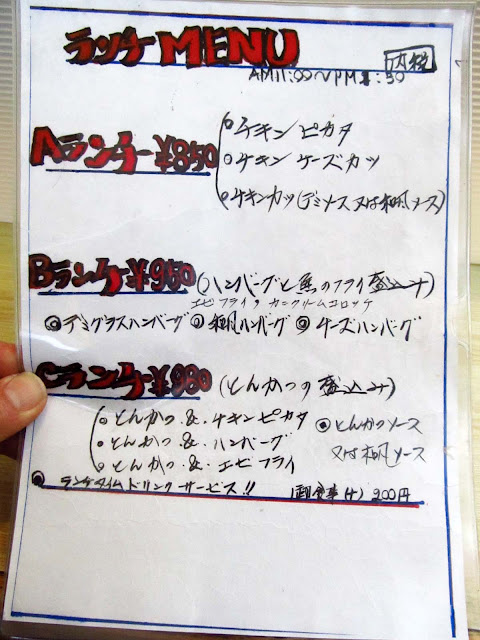 ランチ MENU 内税
AM11:00〜PM :30
Aランチ ¥850
チキン ピカタ
チキン チーズカツ
チキンカツ(デミソース 又は和風ソース)
Bランチ ¥950 (ハンバーグと魚のフライ盛込み)
エビフライ カニクリームコロッケ
デミグラスハンバーグ 和風ハンバーグ チーズハンバーグ
Cランチ ¥980 (とんかつの盛込み)
とんかつ & チキンピカタ とんかつソース
とんかつ & ハンバーグ 又は和風ソース
とんかつ & エビフライ
ランチタイムドリンクサービス!! 200円